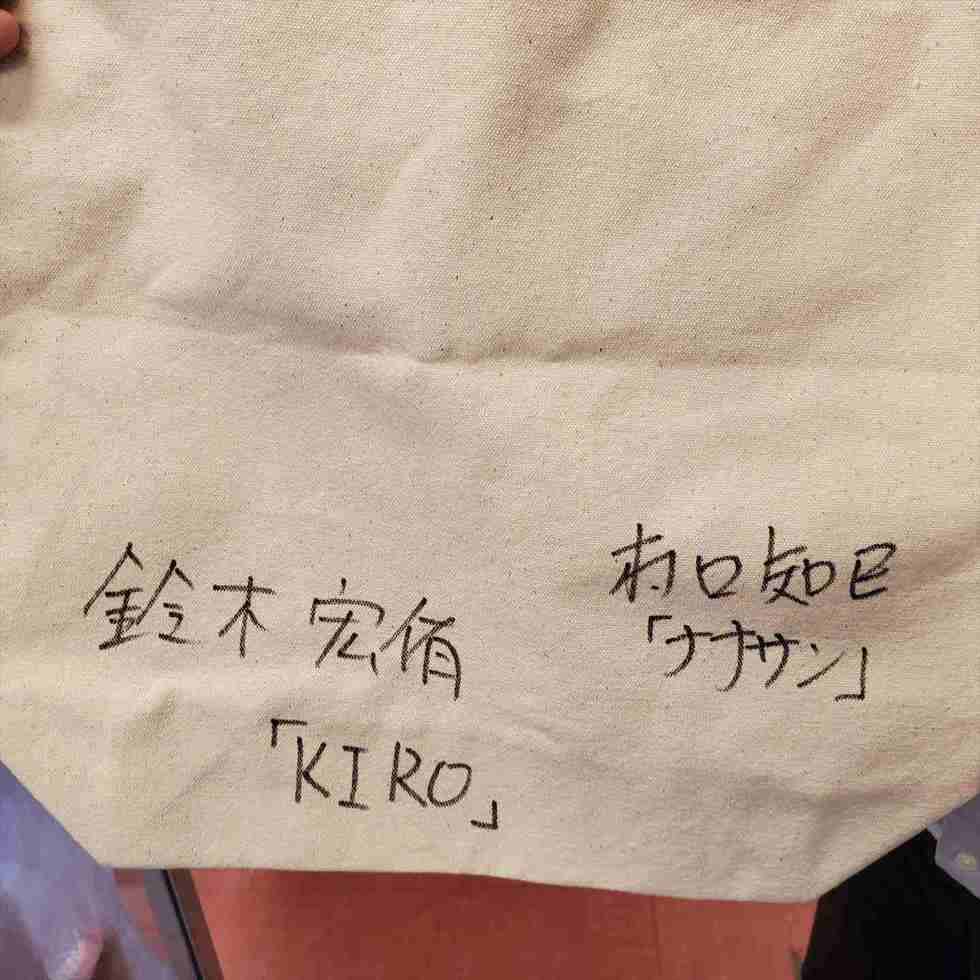 鈴木宏侑
「KIRO」
村口知巳
「ナナサン」